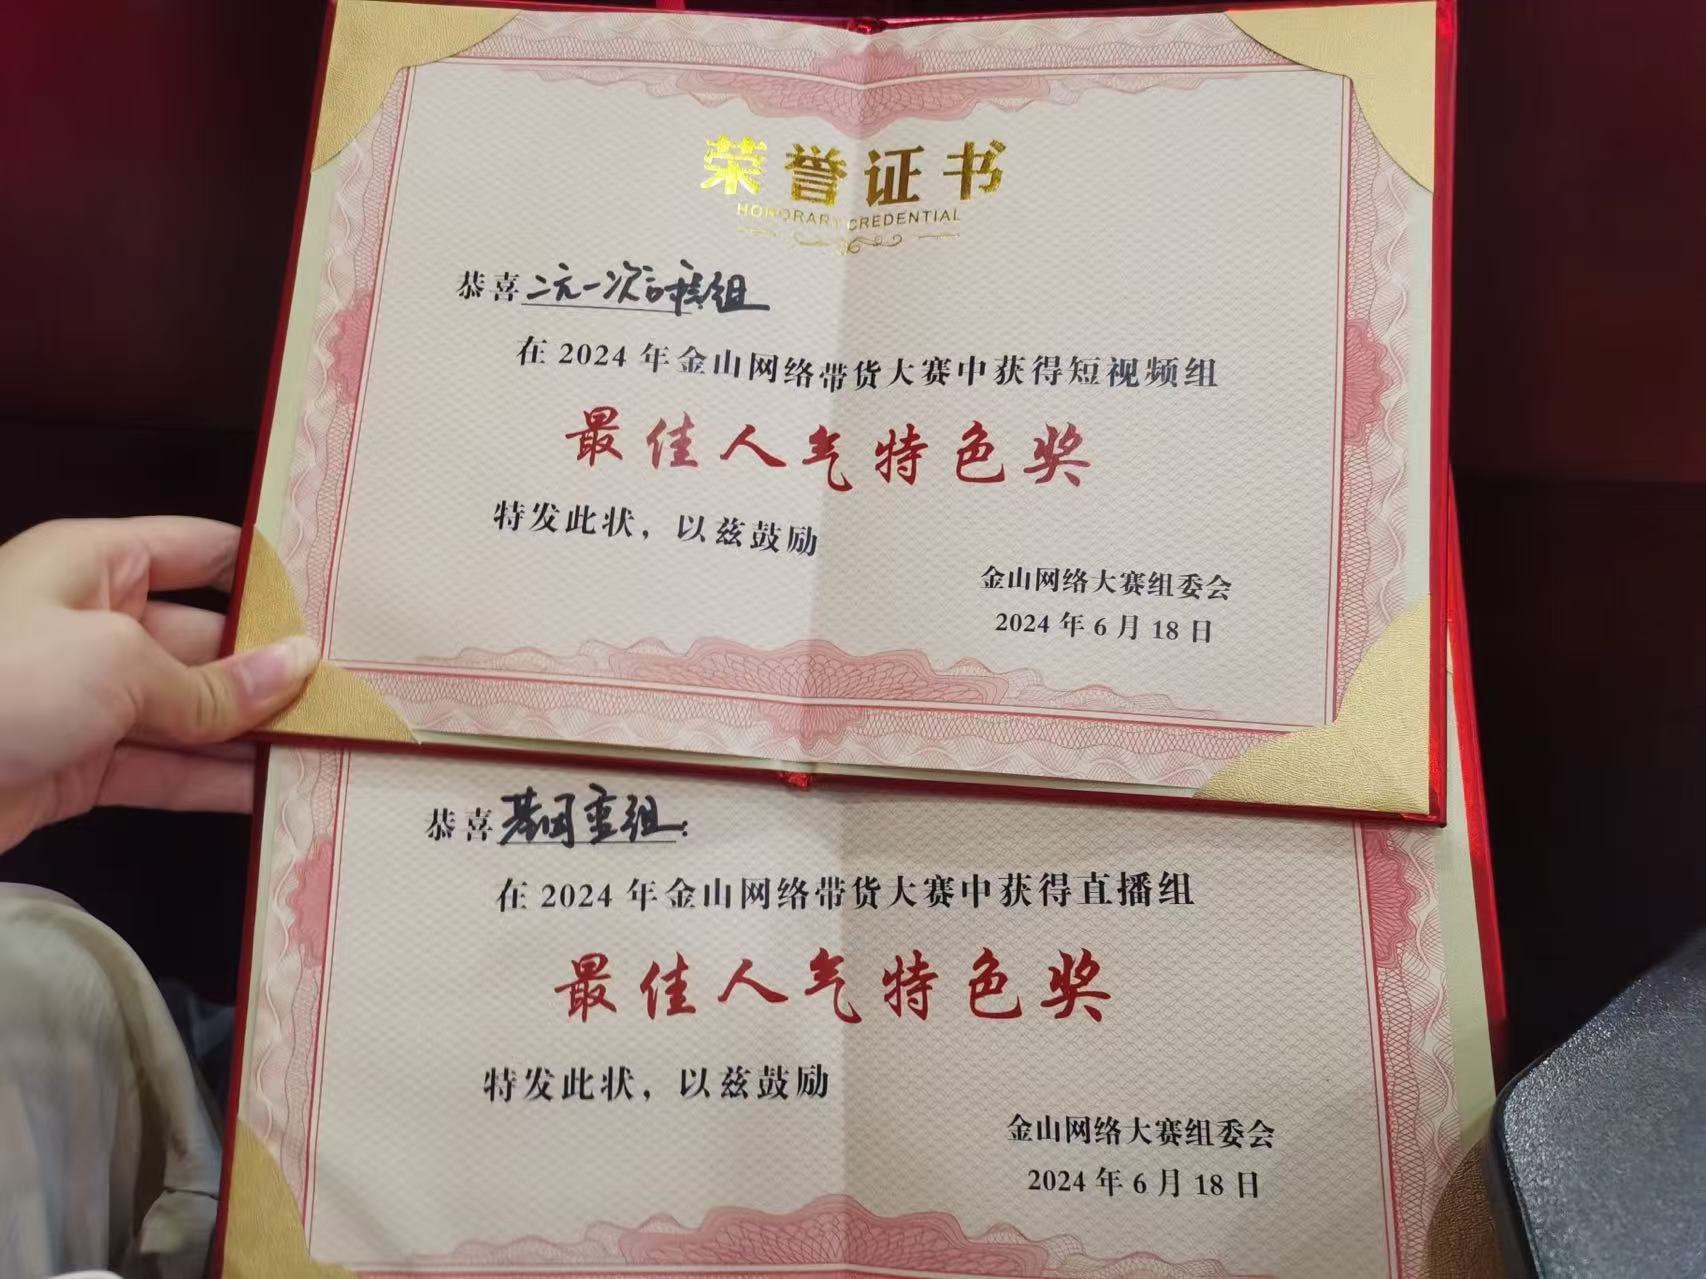 荣誉证书
HONORARY CREDENTIAL
恭喜二元一次方程组
在2024年金山网络带货大赛中获得短视频组
最佳人气特色奖
特发此状，以兹鼓励
金山网络大赛组委会
2024年6月18日
恭喜基因重组：
在2024年金山网络带货大赛中获得直播组
最佳人气特色奖
特发此状，以兹鼓励
金山网络大赛组委会
2024年6月18日